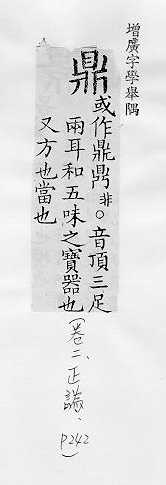 增廣字學舉隅
鼎
或作鼑鼎非。音頂三足
兩耳和五味之寶器也
又方也當也
(卷二、正譌、
P242)